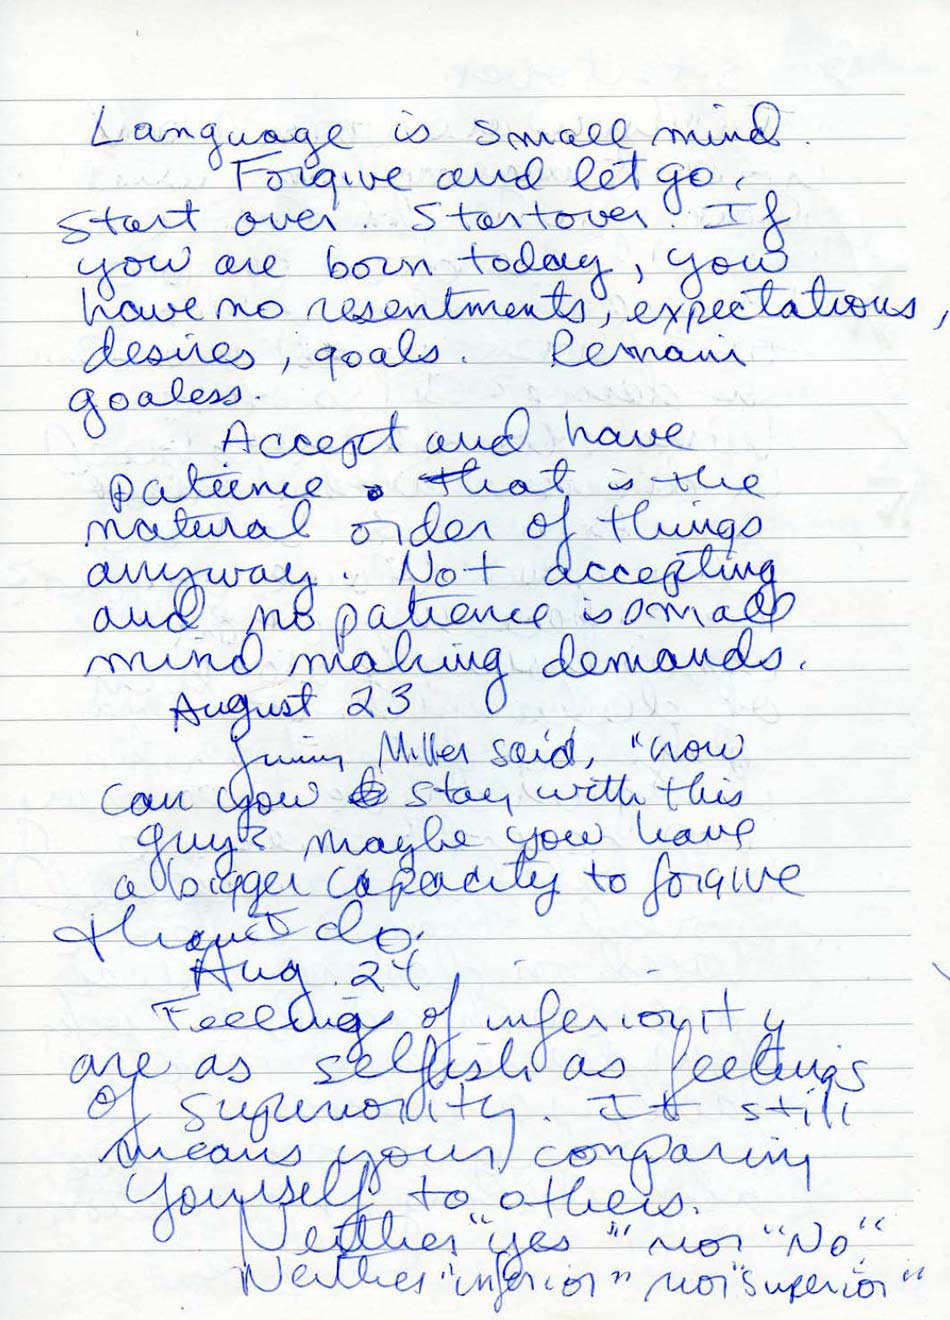 Language is small mind.
Forgive and let go.
start over. Startover. If
you are born today, you
have no resentments, expectations,
desires, goals. Remain
goaless.
Accept and have
patience. that is the
natural order of things
anyway. Not accepting
and no patience is small
mind making demands.
August 23
Miller said, "how
can you stay with this
guy? maybe you have
a bigger capacity to forgive
than I do.
Aug. 24
Feelings of inferiority
are as selfish as feelings
of superiority. It still
means your comparing
yourself to others.
Neither "yes" nor "No"
Neither "inferior" nor "superior"